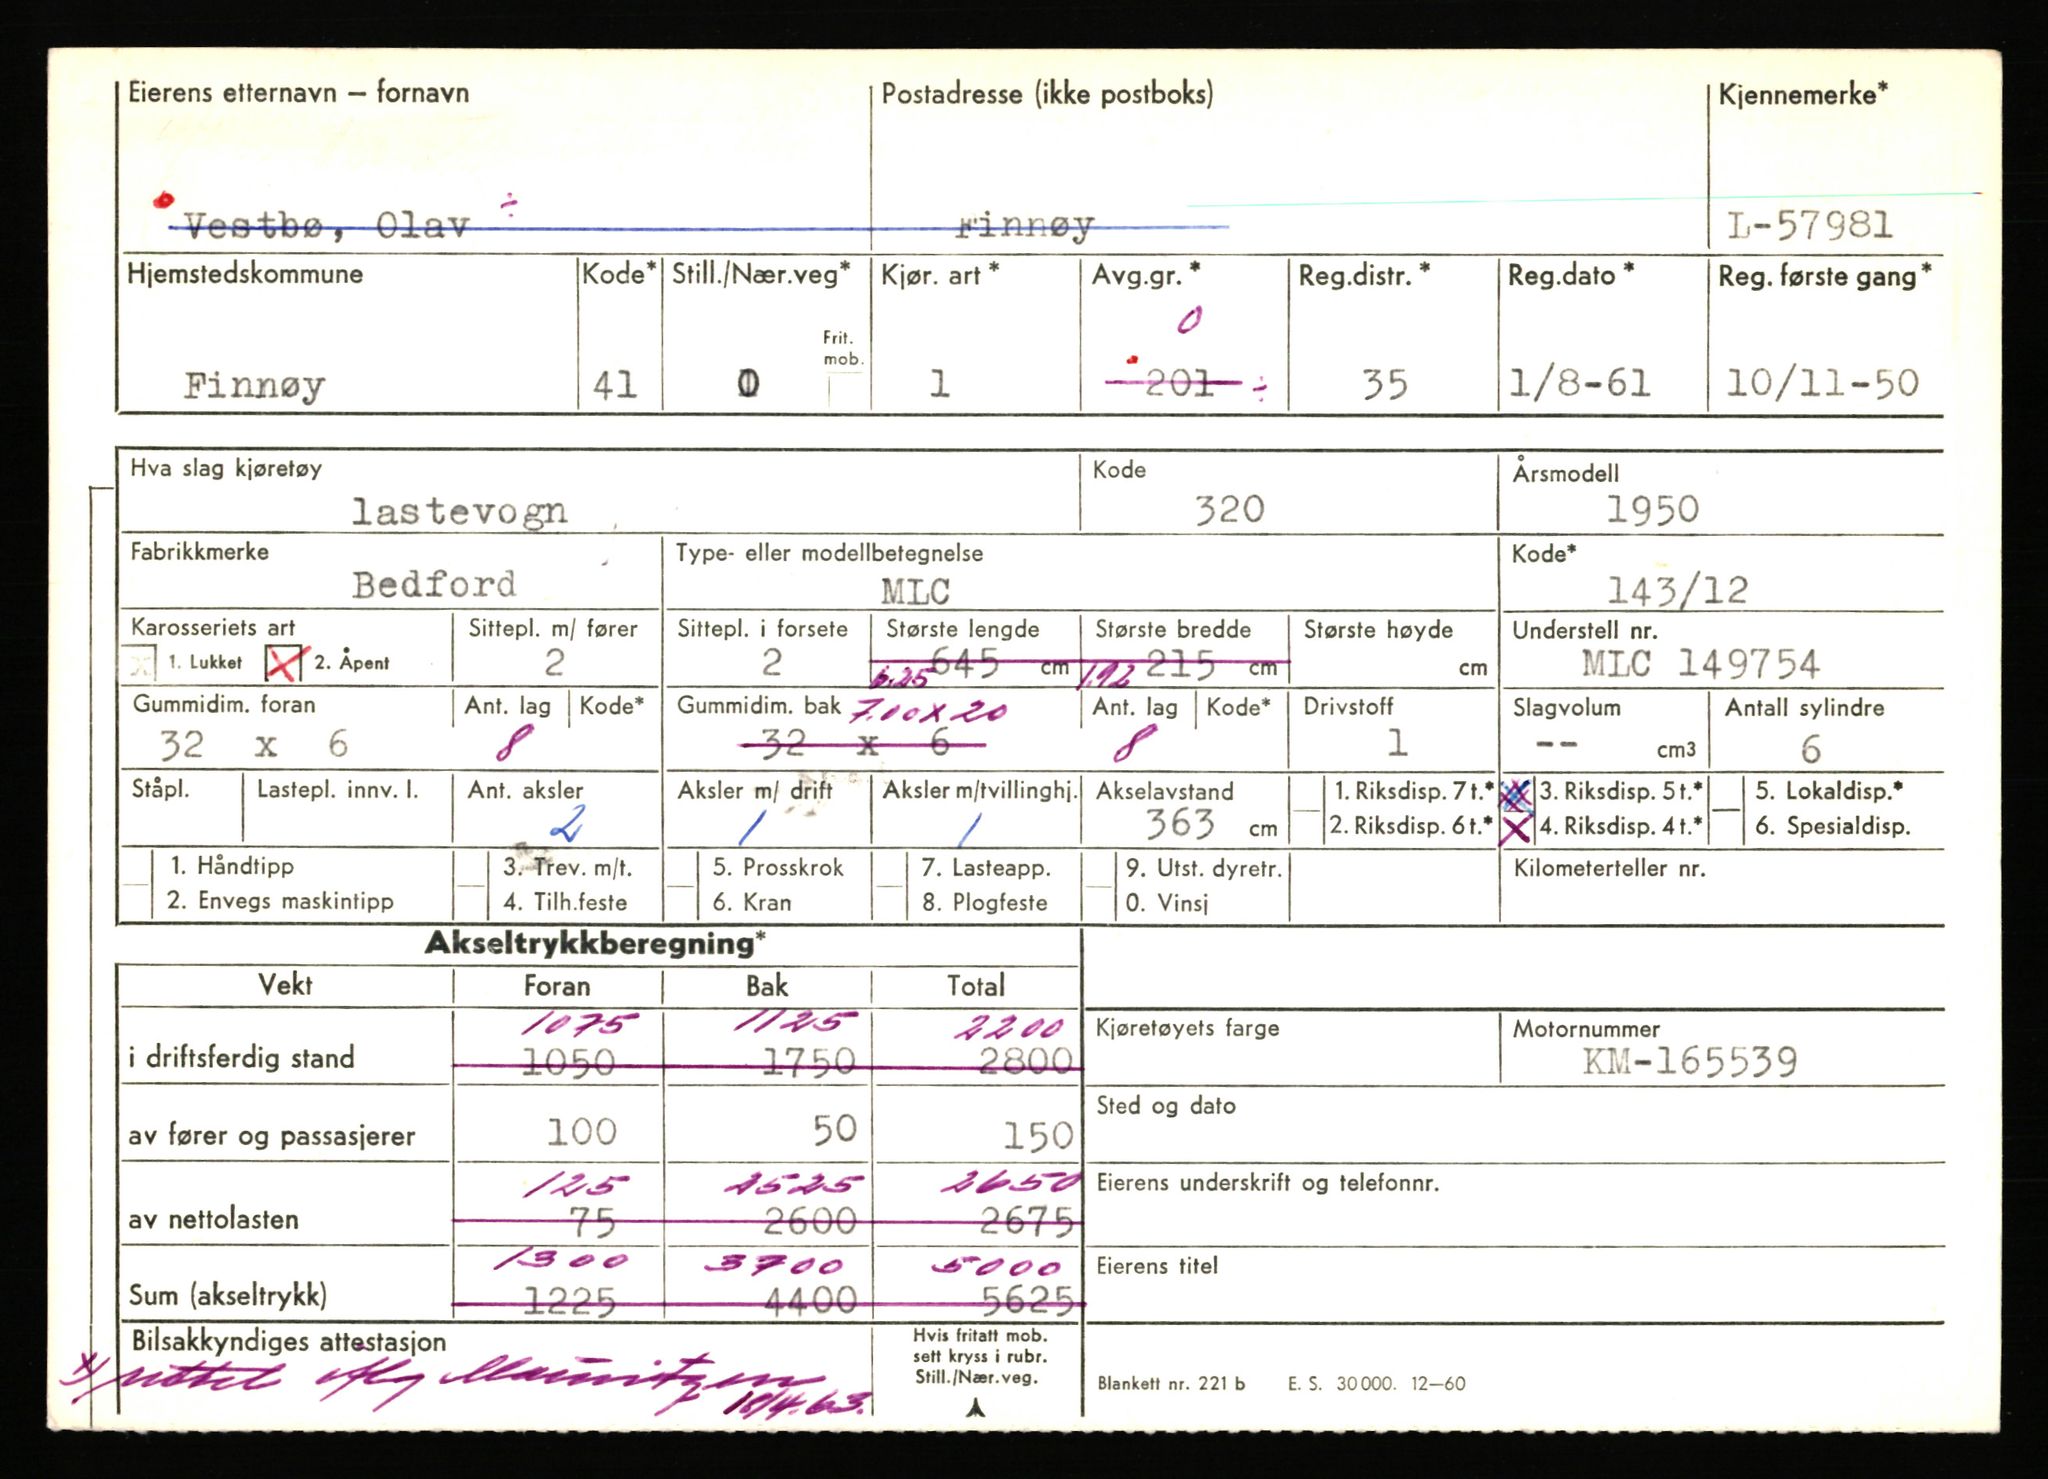 Eierens etternavn – fornavn Postadresse (ikke postboks) Kjennemerke*
Vestbø, Olav ÷ Finnøy L-57981
Hjemstedskommune Kode* Still./Nær.veg* Kjør. art* Avg.gr.* Reg.distr.* Reg.dato* Reg. første gang*
0
Frit.
mob.
Finnøy 41 0 1 201 ÷ 35 1/8-61 10/11-50
Hva slag kjøretøy Kode Årsmodell
lastevogn 320 1950
Fabrikkmerke Type- eller modellbetegnelse Kode*
Bedford MLC 143/12
Karosseriets art Sittepl. m/ fører Sittepl. i forsete Største lengde Største bredde Største høyde Understell nr.
x 1. Lukket X 2. Åpent 2 2 645 cm 215 cm cm MLC 149754
6.25 1.92
Gummidim. foran Ant. lag Kode* Gummidim. bak 7.00 x 20 Ant. lag Kode* Drivstoff Slagvolum Antall sylindre
32 x 6 8 32 x 6 8 1 -- cm3 6
Ståpl. Lastepl. innv. l. Ant. aksler Aksler m/ drift Aksler m/tvillinghj. Akselavstand 1. Riksdisp. 7 t.* X 3. Riksdisp. 5 t.* 5. Lokaldisp.*
2 1 1 363 cm 2. Riksdisp. 6 t.* X 4. Riksdisp. 4 t.* 6. Spesialdisp.
1. Håndtipp 3. Trev. m/t. 5. Prosskrok 7. Lasteapp. 9. Utst. dyretr. Kilometerteller nr.
2. Envegs maskintipp 4. Tilh.feste 6. Kran 8. Plogfeste 0. Vinsj
Akseltrykkberegning*
Vekt Foran Bak Total
1075 1125 2200
i driftsferdig stand 1050 1750 2800
Kjøretøyets farge Motornummer
KM-165539
av fører og passasjerer 100 50 150
Sted og dato
125 2525 2650
av nettolasten 75 2600 2675
Eierens underskrift og telefonnr.
1300 3700 5000
Sum (akseltrykk) 1225 4400 5625
Eierens titel
Bilsakkyndiges attestasjon
Hvis fritatt mob.
sett kryss i rubr.
Still./Nær.veg.
x/ 18/4.63.
Blankett nr. 221 b E. S. 30000. 12–60